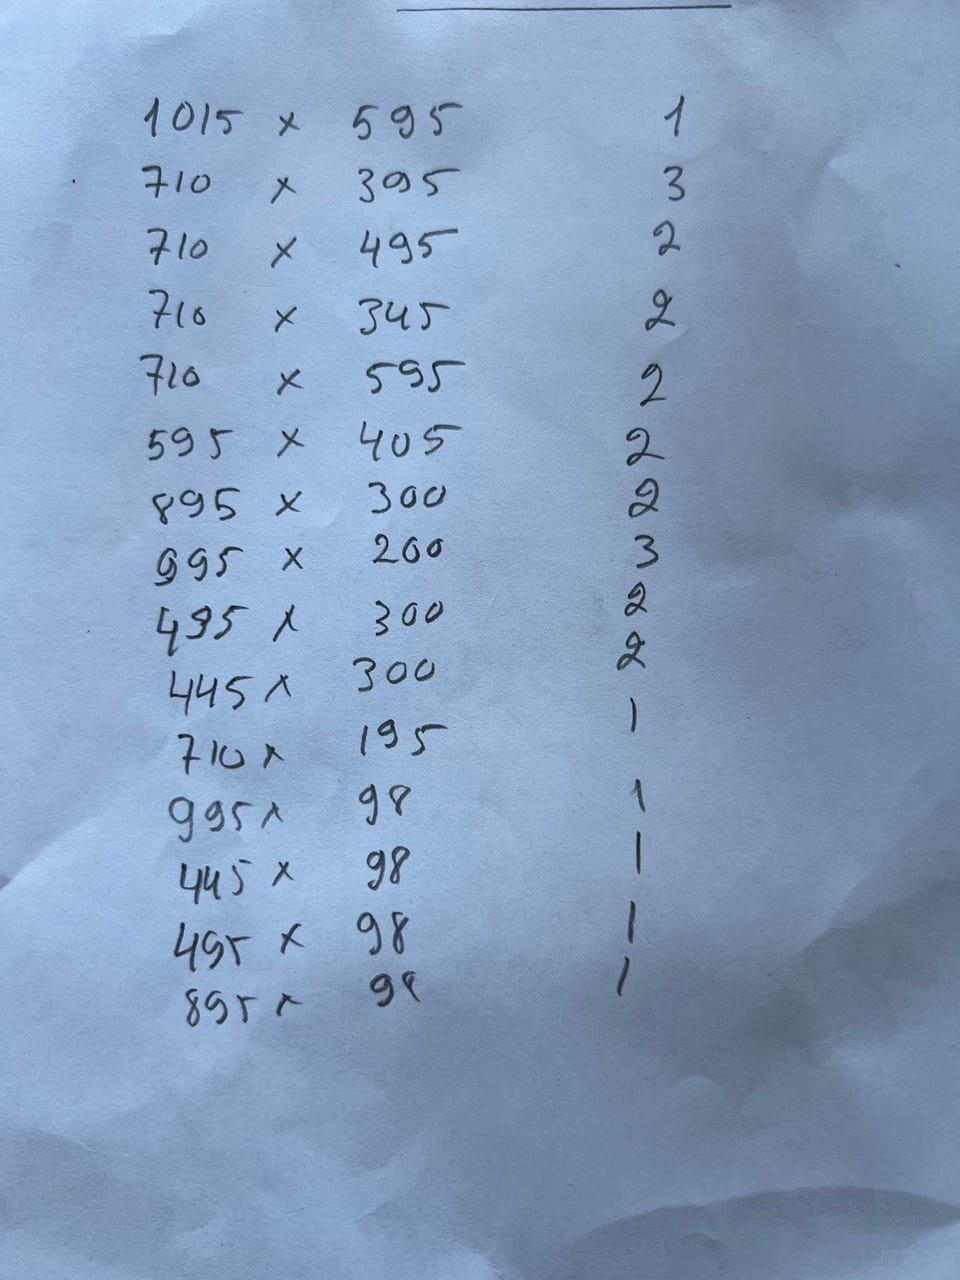 1015 x 595 1
710 x 395 3
710 x 495 2
710 x 345 2
710 x 595 2
595 x 405 2
895 x 300 2
995 x 200 3
495 x 300 2
445 x 300 2
710 x 195 1
995 x 98 1
445 x 98 1
495 x 98 1
895 x 98 1